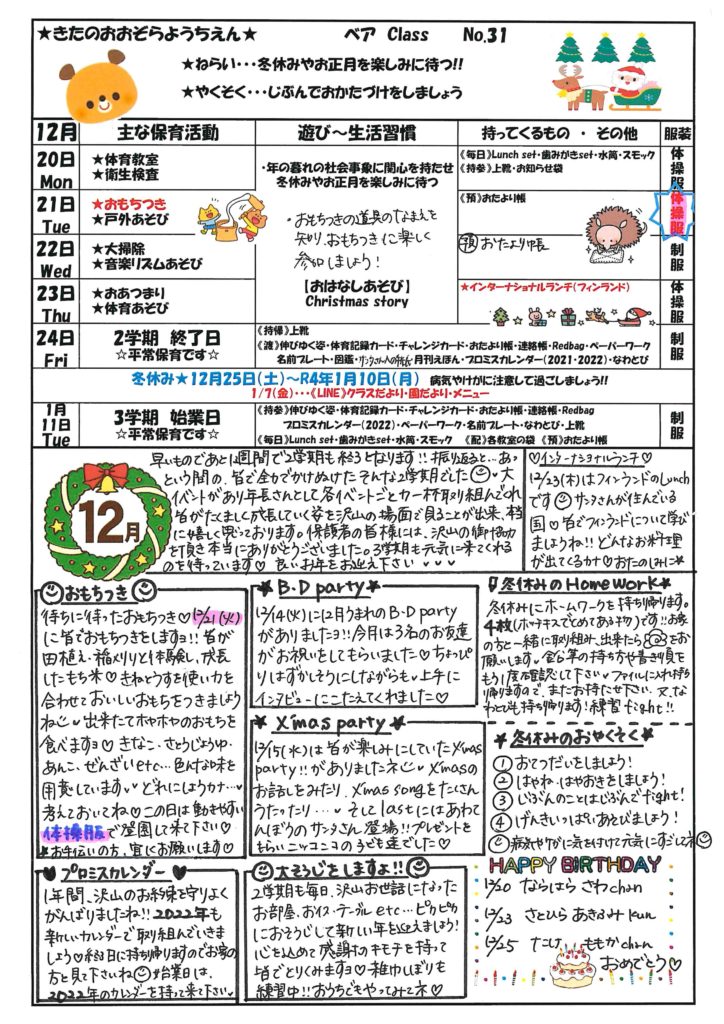 ★きたのおおぞらようちえん★
ベア Class No.31
★ねらい・・・冬休みやお正月を楽しみに待つ!!
★やくそく・・・じぶんでおかたづけをしましょう
12月 主な保育活動 遊び〜生活習慣 持ってくるもの ・ その他 服装
20日 Mon
★体育教室
★衛生検査
・年の暮れの社会事象に関心を持たせ
冬休みやお正月を楽しみに待つ
《毎日》Lunch set・歯みがきset・水筒・スモック
《持参》上靴・お知らせ袋
体操服
21日 Tue
★おもちつき
★戸外あそび
・おもちつきの道具のなまえを
知り、おもちつきに楽しく
参加しましょう!
《預》おたより帳
体操服
22日 Wed
★大掃除
★音楽リズムあそび
預 おたより帳
制服
23日 Thu
★おあつまり
★体育あそび
【おはなしあそび】
Christmas story
★インターナショナルランチ(フィンランド)
体操服
24日 Fri
2学期 終了日
☆平常保育です☆
《持帰》上靴
《渡》伸びゆく姿・体育記録カード・チャレンジカード・おたより帳・連絡帳・Redbag・ペーパーワーク
名前プレート・図鑑・サンタさんへの手紙・月刊えほん・プロミスカレンダー(2021・2022)・なわとび
制服
冬休み★12月25日(土)〜R4年1月10日(月) 病気やけがに注意して過ごしましょう!!
1/7(金)・・・《LINE》クラスだより・園だより・メニュー
1月 11日 Tue
3学期 始業日
☆平常保育です☆
《持参》伸びゆく姿・体育記録カード・チャレンジカード・おたより帳・連絡帳・Redbag
プロミスカレンダー(2022)・ペーパーワーク・名前プレート・なわとび・上靴
《毎日》Lunch set・歯みがきset・水筒・スモック 《配》各教室の袋 《預》おたより帳
制服
12月
早いものであと1週間で2学期も終ろとなります!!振り返ると…あっ
という間の、皆で全力でかけぬけたそんな2学期でした 大
イベントがあり年長さんとして各イベントごと一生懸命取り組んでくれ
皆がたくましく成長していく姿を沢山の場面で見ることが出来、本当
に嬉しく思っております。保護者の皆様には、沢山の御協力
を頂き本当にありがとうございました。3学期も元気に来てくれる
のを待っています♡ 良いお年をお迎え下さい ♥ ♥ ♥
♡インターナショナルランチ♡
12/23(木)はフィンランドのLunch
です サンタさんが住んでいる
国♡皆でフィンランドについて学び
ましょうね!!どんなお料理
が出てくるかな♡おたのしみに☆
おもちつき
待ちに待ったおもちつき♡12/21(火)
に皆でおもちつきをしますヨ!!皆が
田植え・稲刈りと体験し、成長
したもち米♡きねとうすを使い力を
合わせておいしいおもちをつきましょう
ね 出来たてホヤホヤのおもちを
食べますヨ♡きなこ・さとうじょうゆ・
あんこ・ぜんざいetc…色んな味を
用意しています。♥どれにしようカナ…♥
考えておいてね♡この日は動きやすい
体操服で登園して来て下さい♡
★お手伝いの方、宜しくお願いします♡
B.D party
12/14(火)に12月うまれのB.D party
がありましたヨ!!今月は3名のお友達
がお祝いをしてもらいました♡ちょっぴ
りはずかしそうにしながらも♥上手に
インタビューにこたえてくれました♡
X'mas party
12/15(水)は皆が楽しみにしていたX'mas
party!!がありましたネ♡X'masの
お話しをみたり、X'mas songをたくさん
うたったり・・・♥そしてlastにはあわて
んぼうのサンタさん登場!!プレゼントを
もらいニッコニコの子ども達でした♡
冬休みのHomeWork
冬休みにホームワークを持ち帰ります。
4枚(ホッチキスでとめてある物)です!!お家
の方と一緒に取り組み、出来たら をお
願いします。♥鉛筆の持ち方や書き順を
もう1度確認して下さい♥ファイルに入れ持ち
帰りますので、またお持たせ下さい。又、な
わとびも持ち帰ります!練習fight!!
★冬休みのおやくそく★
① おてつだいをしましょう!
② はやね・はやおきをしましょう!
③ じぶんのことはじぶんでfight!
④ げんきいっぱいあそびましょう!
病気やケガに気を付けて元気にすごしてネ
プロミスカレンダー
1年間、沢山のお約束を守りよく
がんばりましたね!!2022年も
新しいカレンダーで取り組んでいきま
しょう♡終了日に持ち帰りますのでお家の
方と見て下さいね 始業日は、
2022年のカレンダーを持って来て下さい♥
大そうじをしますよ!!
2学期も毎日、沢山お世話になった
お部屋、おイス・テーブルetc…ピカピカ
におそうじして新しい年を迎えましょう!
心を込めて感謝のキモチを持って
皆でとりくみますヨ♡雑巾しぼりも
練習中!!おうちでもやってみてネ♡
HAPPY BIRTHDAY
12/20 ならはら さわchan
12/23 さとひら あきるみkun
12/25 たけ ももかchan
おめでとう♡